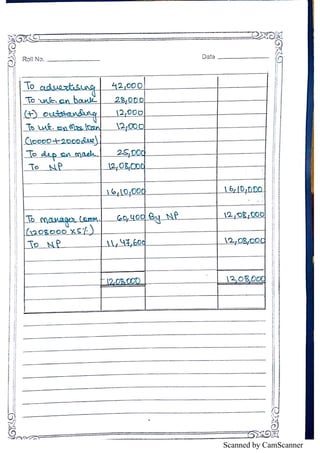 Roll No.
Date
To advertising 42,000
To int. on bank 28,000
(+) outstanding 12,000
To int. on 12,000
(10000+2000
To dep on mach. 25,000
To NP 12,08,000
16,10,000 16,10,000
To manager comm. 60,400 By NP 12,08,000
(1208000 x5%)
To NP 11,47,600 12,08,000
12,08,000 12,08,000
Scanned by CamScanner